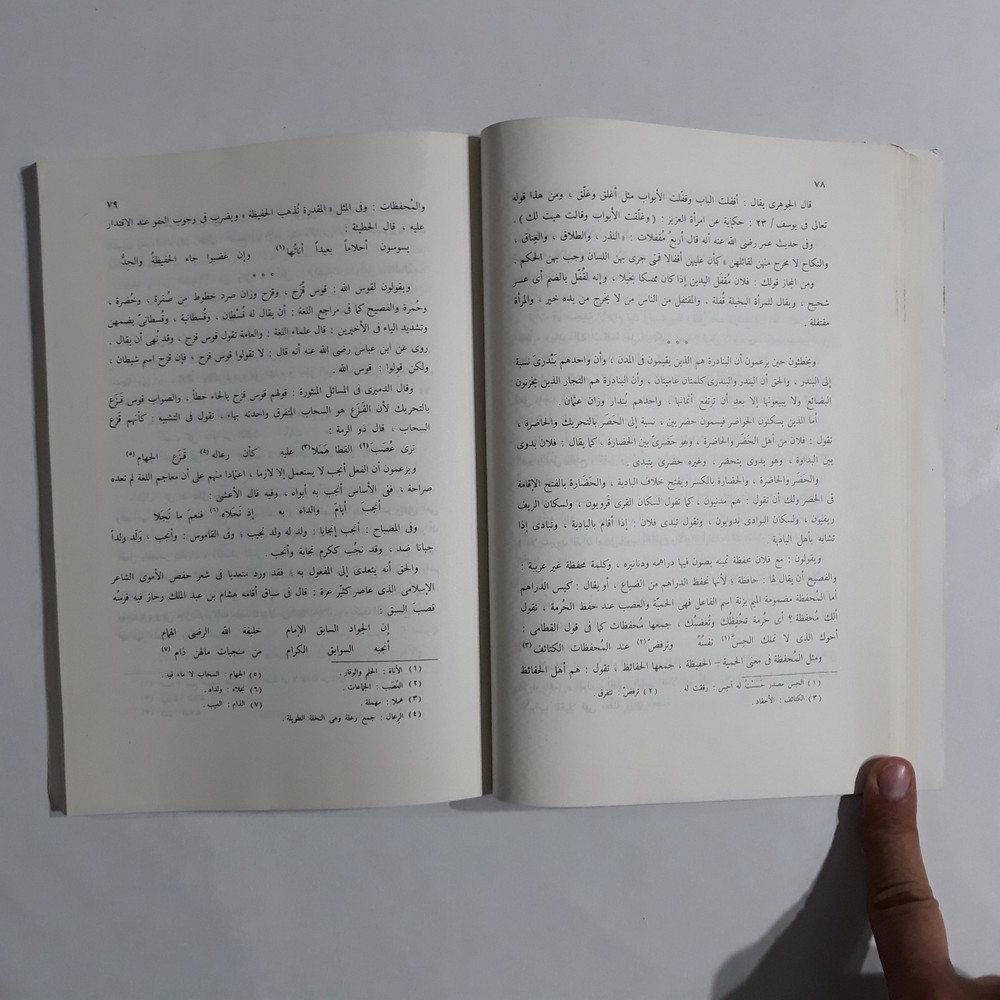 ٧٨
قال الجوهرى يقال : أقفلت الباب وقفّلت الأبواب مثل أغلق وغلّق ، ومن هذا قوله
تعالى فى يوسف / ٢٣ : حكاية عن امرأة العزيز : ( وغلّقت الأبواب وقالت هيت لك ) .
وفى حديث عمر رضى الله عنه أنه قال أربعُ مُقفلات : « النذر ، والطلاق ، والعِتاق ،
والنكاح لا مخرج منهن لقائلهن » كأن عليهن أقفالا فمتى جرى بهن اللسان وجب بهن الحكم .
ومن المجاز قولك : فلان مُقفَل اليدين إذا كان ممسكا بخيلا ، وإنه لقُفْل بالضم أى عسر
شحيح ، ويقال للمرأة البخيلة قُفلة ، والمقتفل من الناس من لا يخرج من يده خير ، والمرأة
مقتفلة .
* * *
ويخطئون حين يزعمون أن البنادرة هم الذين يقيمون فى المدن ، وأن واحدهم بَنْدرىّ نسبة
إلى البندر ، والحق أن البندر والبندرى كلمتان عاميتان ، وأن البنادرة هم التجار الذين يخزنون
البضائع ولا يبيعونها إلا بعد أن ترتفع أثمانها ، واحدهم بُندار وزان عثمان .
أما الذين يسكنون الحواضر فيسمون حضريين ، نسبة إلى الحَضَر بالتحريك والحاضرة ،
تقول : فلان من أهل الحَضَر والحاضرة ، وهو حضرىّ بين الحضارة ، كما يقال : فلان بدوى
بين البداوة ، وهو بدوى يتحضر ، وغيره حضرى يتبدى .
والحَضَر والحاضرة ، والحضارة بالكسر ويفتح خلاف البادية ، والحَضَارة بالفتح الإقامة
فى الحضر ولك أن تقول : هم مدنيون ، كما تقول لسكان القرى قَرويون ، ولسكان الريف
ريفيون ، ولسكان البوادى بدويون ، وتقول تبدى فلان : إذا أقام بالبادية ، وتبادى إذا
تشابه بأهل البادية .
ويقولون : مع فلان محفظة ثمينه يصون فيها دراهمه ودنانيره ، وكلمة محفظة غير عربية :
والفصيح أن يقال لها : حافظة ؛ لأنها تحفظ الدراهم من الضياع ، أو يقال : كيس الدراهم
أما المُحفظة مضمومة الميم بزنة اسم الفاعل فهى الحميّة والغضب عند حفظ الحُرمة ، تقول
ألك مُحفِظة ؟ أى حُرمة تحْفِظُك وتُغضبك ، جمعها مُحفظات كما فى قول القطامى :
أخوك الذى لا تملك الحِسّ (١) نفسُهُ وترفضّ (٢) عند المُحفظات الكتائف (٣)
ومثل المُحفظة فى معنى الحمية – الحفيظة ، جمعها الحفائظ ، تقول : هم أهل الحفائظ
(١) الحِس مصدر حَسَسْتُ له أحِس : رققت له . (٢) ترفضّ : تتفرق .
(٣) الكتائف : الأحقاد .
٧٩
والمُحفظات : وفى المثل « المقدرة تُذهب الحفيظة » ويضرب فى وجوب العفو عند الاقتدار
عليه ، قال الحطيئة :
يسوسون أحلاماً بعيداً أناتُها (١) وإن غضبوا جاء الحفيظةُ والجِدُّ
* * *
ويقولون لقوس الله : قوس قُزَح ، وقزح وزان صرد خطوط من صُفرة ، وخُضرة ،
وحُمرة والفصيح كما فى مراجع اللغة : أن يقال له قُسْطان ، وقُسطانية . وقُسطانىّ بضمهن
وتشديد الياء فى الأخيرين : قال علماء اللغة : والعامة تقول قوس قزح ، وقد نُهى أن يقال .
روى عن ابن عباس رضى الله عنه أنه قال : لا تقولوا قوس قزح ؛ فإن قزح اسم شيطان ،
ولكن قولوا : قوس الله .
وقال الدميرى فى المسائل المنثورة : قولهم قوس قزح بالحاء خطأ . والصواب قوس قَزَع
بالتحريك لأن القَزَع هو السحاب المتفرق واحدته بهاء ، تقول فى التشبيه : كأنهم قَزَع
السحاب ، قال ذو الرمة :
ترى عُصَبَ (٢) القطا هَمَلا (٣) عليه كأن رعاله (٤) قَزَع الجهام (٥)
ويزعمون أن الفعل أنجب لا يستعمل إلا لازما ، اعتمادا منهم على أن معاجم اللغة لم تعده
صراحة ، ففى الأساس أنجب به أبواه ، وفيه قال الأعشى :
أنجبَ أيامَ والداه به إذ نَجَلاه (٦) فنعمَ ما نَجَلا
وفى المصباح : أنجب إنجابا : ولد له ولد نجيب » وفى القاموس : وأنجب . وَلَد ولداً
جبانا ضد ، وقد نجُب ككرم نجابة وأنجب .
والحق أنه يتعدى إلى المفعول به ؛ فقد ورد متعديا فى شعر حفص الأموى الشاعر
الإسلامى الذى عاصر كثيّر عزة : قال فى سباق أقامه هشام بن عبد الملك وحاز فيه فرسُه
قصب السبق :
إن الجواد السابق الإمام خليفة الله الرضى الهمام
أنجبه السوابق الكرام من منجبات مالهن ذام (٧)
(١) الأناة : الحلم والوقار . (٥) الجهام : السحاب لا ماء فيه .
(٢) العُصَب : الجماعات . (٦) نجلاه : ولداه .
(٣) هملا : مهملة . (٧) الذام : العيب .
(٤) الرعال : جمع رعلة وهى النخلة الطويلة .